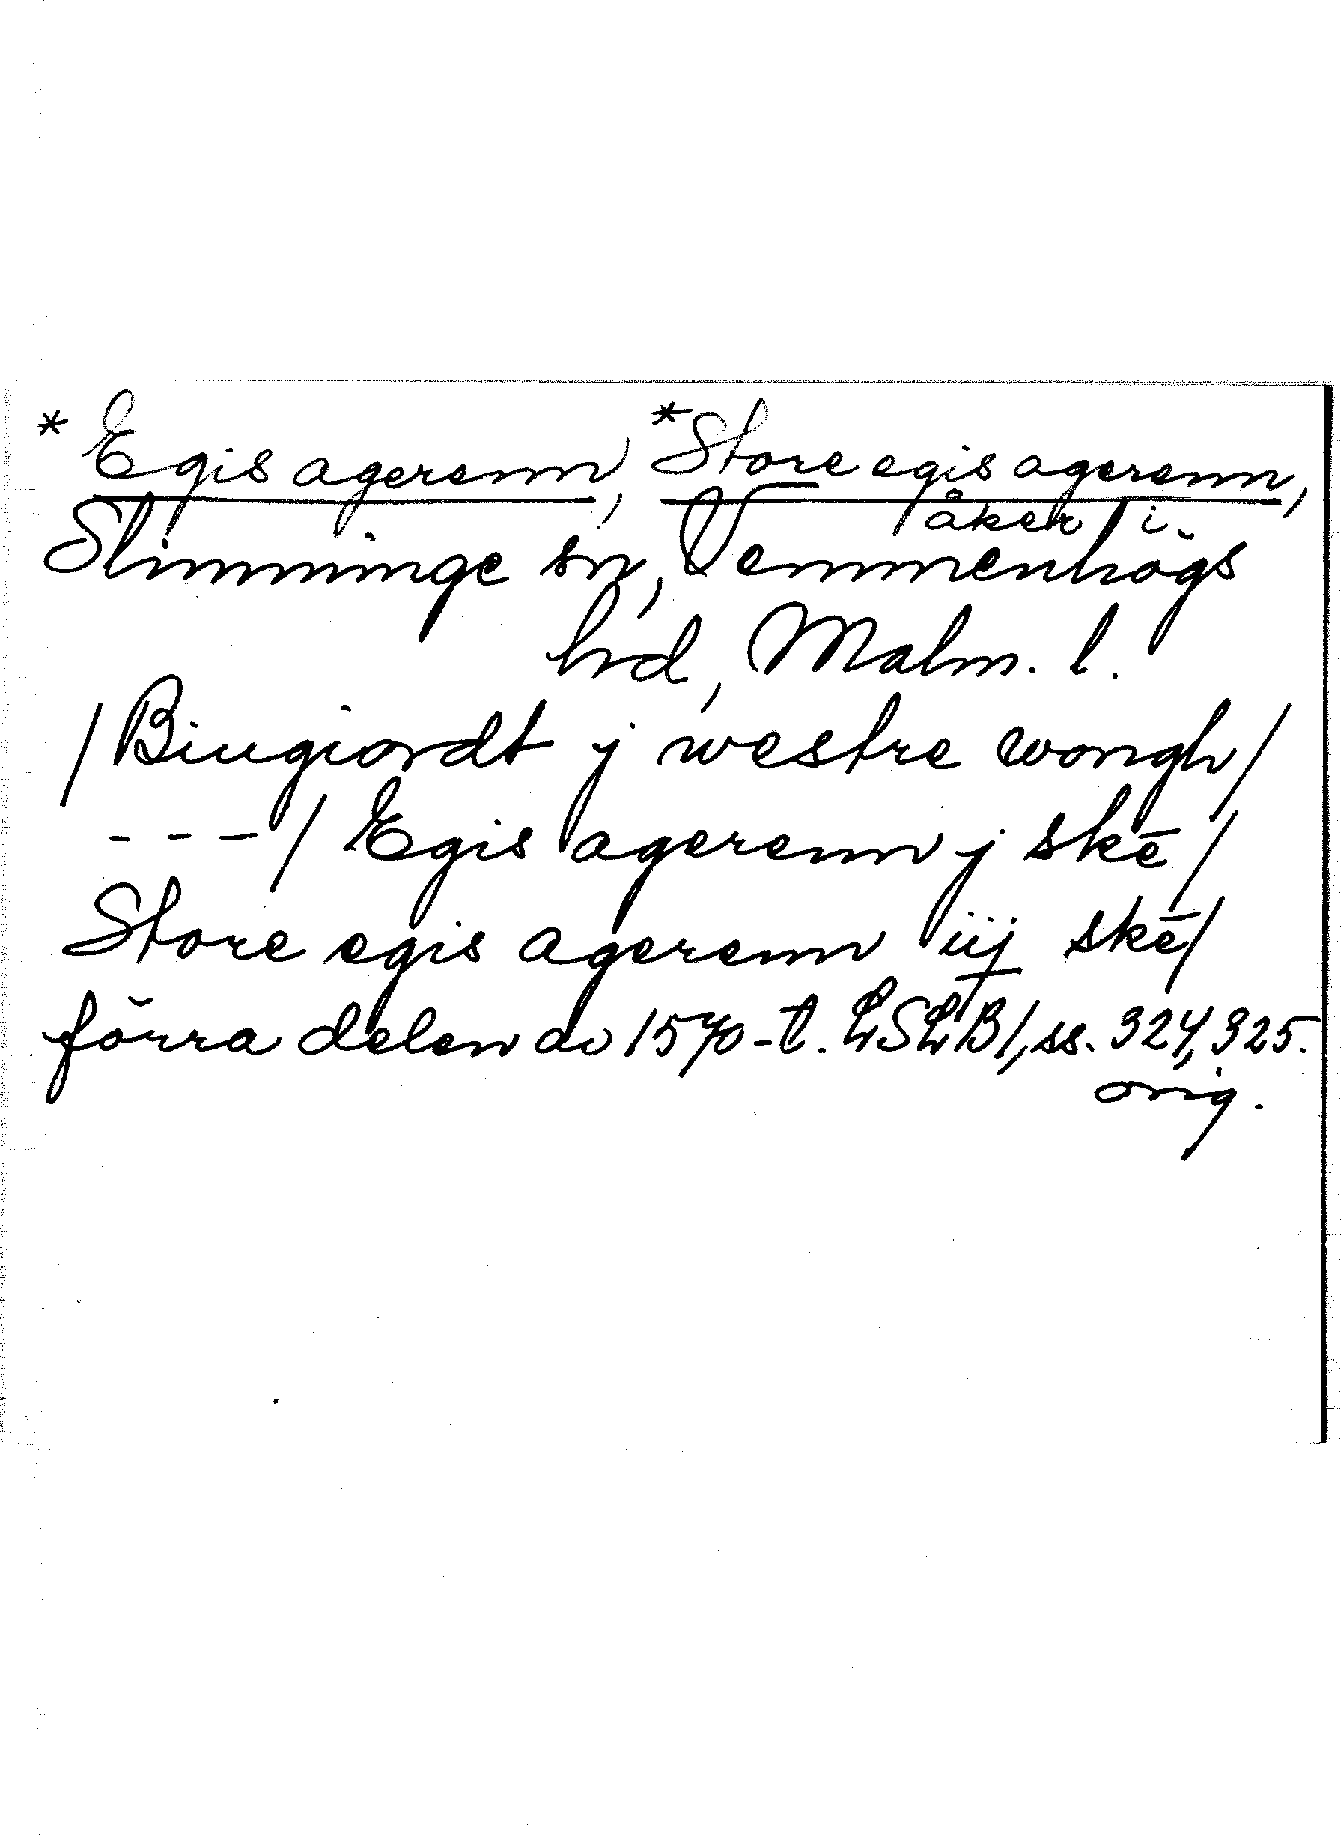 * Egis agerenn, *Store egis agerenn,
åker i
Slimminge sn, Vemmenhögs
hd, Malm. l.
/Biugiordt j westre wongh/
- - - / Egis agerenn j skē/
Store egis agerenn iij skē/
förra delen av 1570-t. LSLB1, ss. 324, 325.
orig.